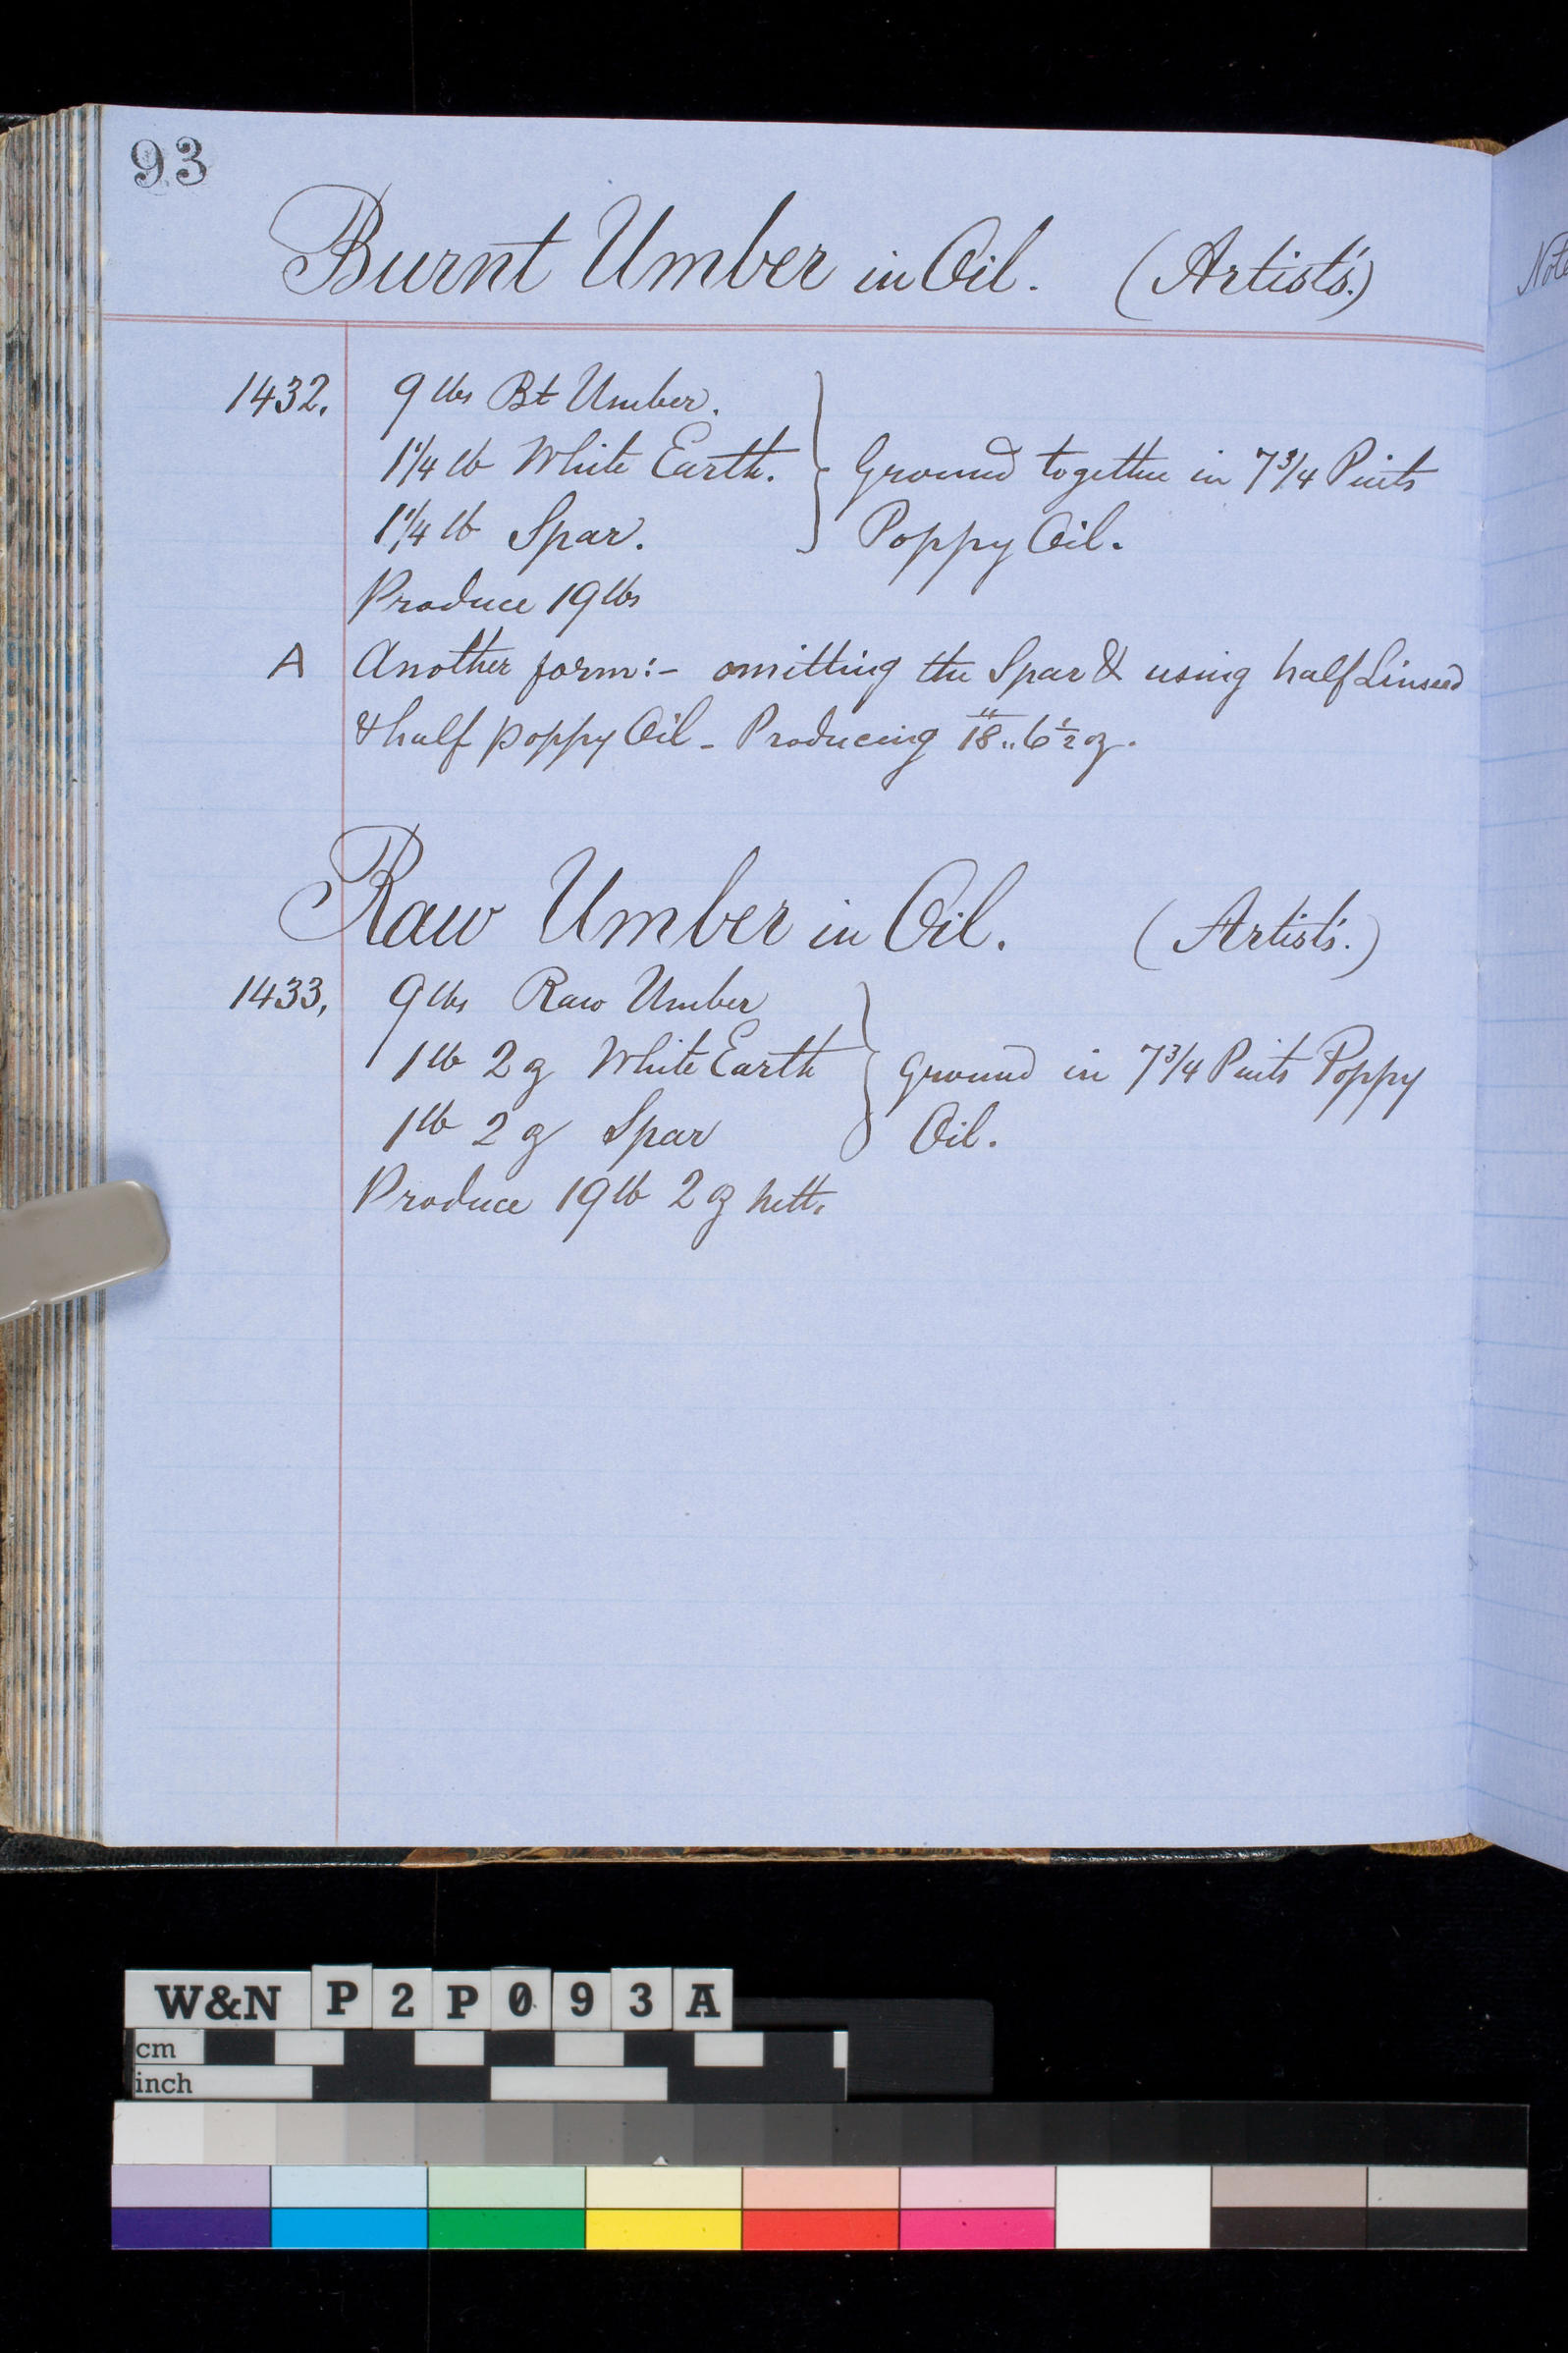 93
Burnt Umber in Oil. (Artists'.)
1432. 9 lbs Bt Umber.
1 1/4 lb White Earth. } Ground together in 7 3/4 Pints
1 1/4 lb Spar. Poppy Oil.
Produce 19 lbs
A Another form:- omitting the Spar & using half Linseed
& half poppy Oil - Producing 18 lb.. 6 1/2 oz.
Raw Umber in Oil. (Artists'.)
1433. 9 lbs Raw Umber
1 lb 2 oz White Earth } Ground in 7 3/4 Pints Poppy
1 lb 2 oz Spar Oil.
Produce 19 lb 2 oz nett.
Note
W&N P2P093A
cm
inch